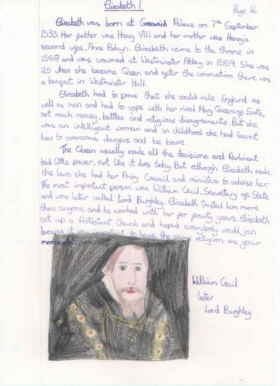 Elizabeth I
Page 16
Elizabeth was born at Greenwich Palace on 7th September
1533. Her father was Henry VIII and her mother was Henry's
second wife, Anne Boleyn. Elizabeth came to the throne in
1558 and was crowned at Westminster Abbey in 1559. She was
25 when she became Queen and after the coronation there was
a banquet in Westminster Hall.
Elizabeth had to prove that she could rule England as
well as men and had to cope with her rival Mary Queen of Scots,
not much money, battles and religious disagreements. But she
was an intelligent woman and in childhood she had learnt
how to overcome dangers and be brave.
The Queen usually made all the decisions and Parliament
had little power, not like it does today. But although Elizabeth made
the laws she had her Privy Council and ministers to advise her.
The most important person was William Cecil, Secretary of State
and was later called Lord Burghley. Elizabeth trusted him more
than anyone and he worked with her for forty years. Elizabeth
set up a Protestant Church and hoped everybody could join
religion was your
William Cecil
later
Lord Burghley